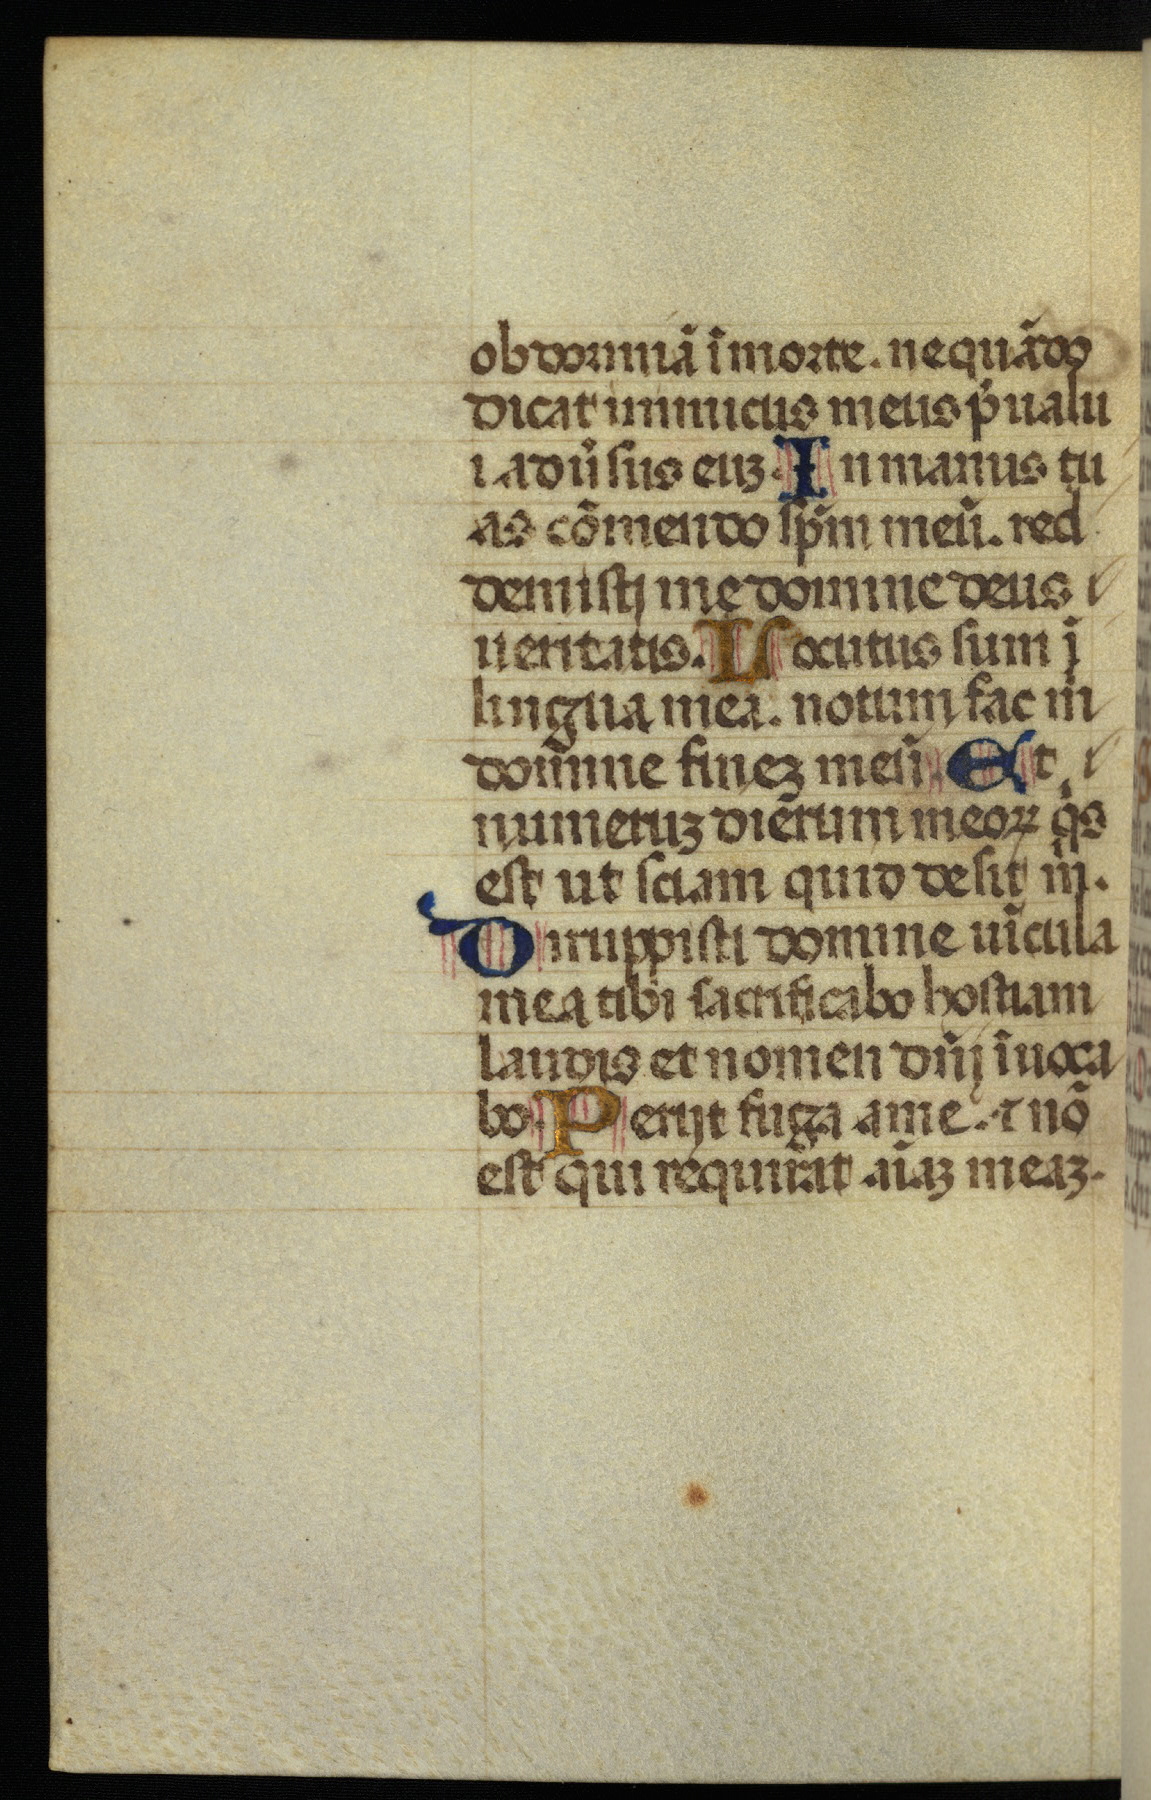 obdormiā ī morte. nequādo
dicat inimicus meus p̄ualu
i adu̓sus euʒ. In manus tu
as cōmendo sp̄m meū. red
demistj me domine deus
ueritatis. Locutus sum ī
lingua mea. notum fac m̄
dom̄ine fineʒ meū. Et
numeruʒ diērum meoꝝ q̄s
est ut sciam quid desit m̄.
Dirruppisti domine uīcula
mea tibi sacrificabo hostiam
laudis et nomen dn̄j īuoca
bo. Perijt fuga a me. ⁊ nō
est qui requirat aīaʒ meaʒ.